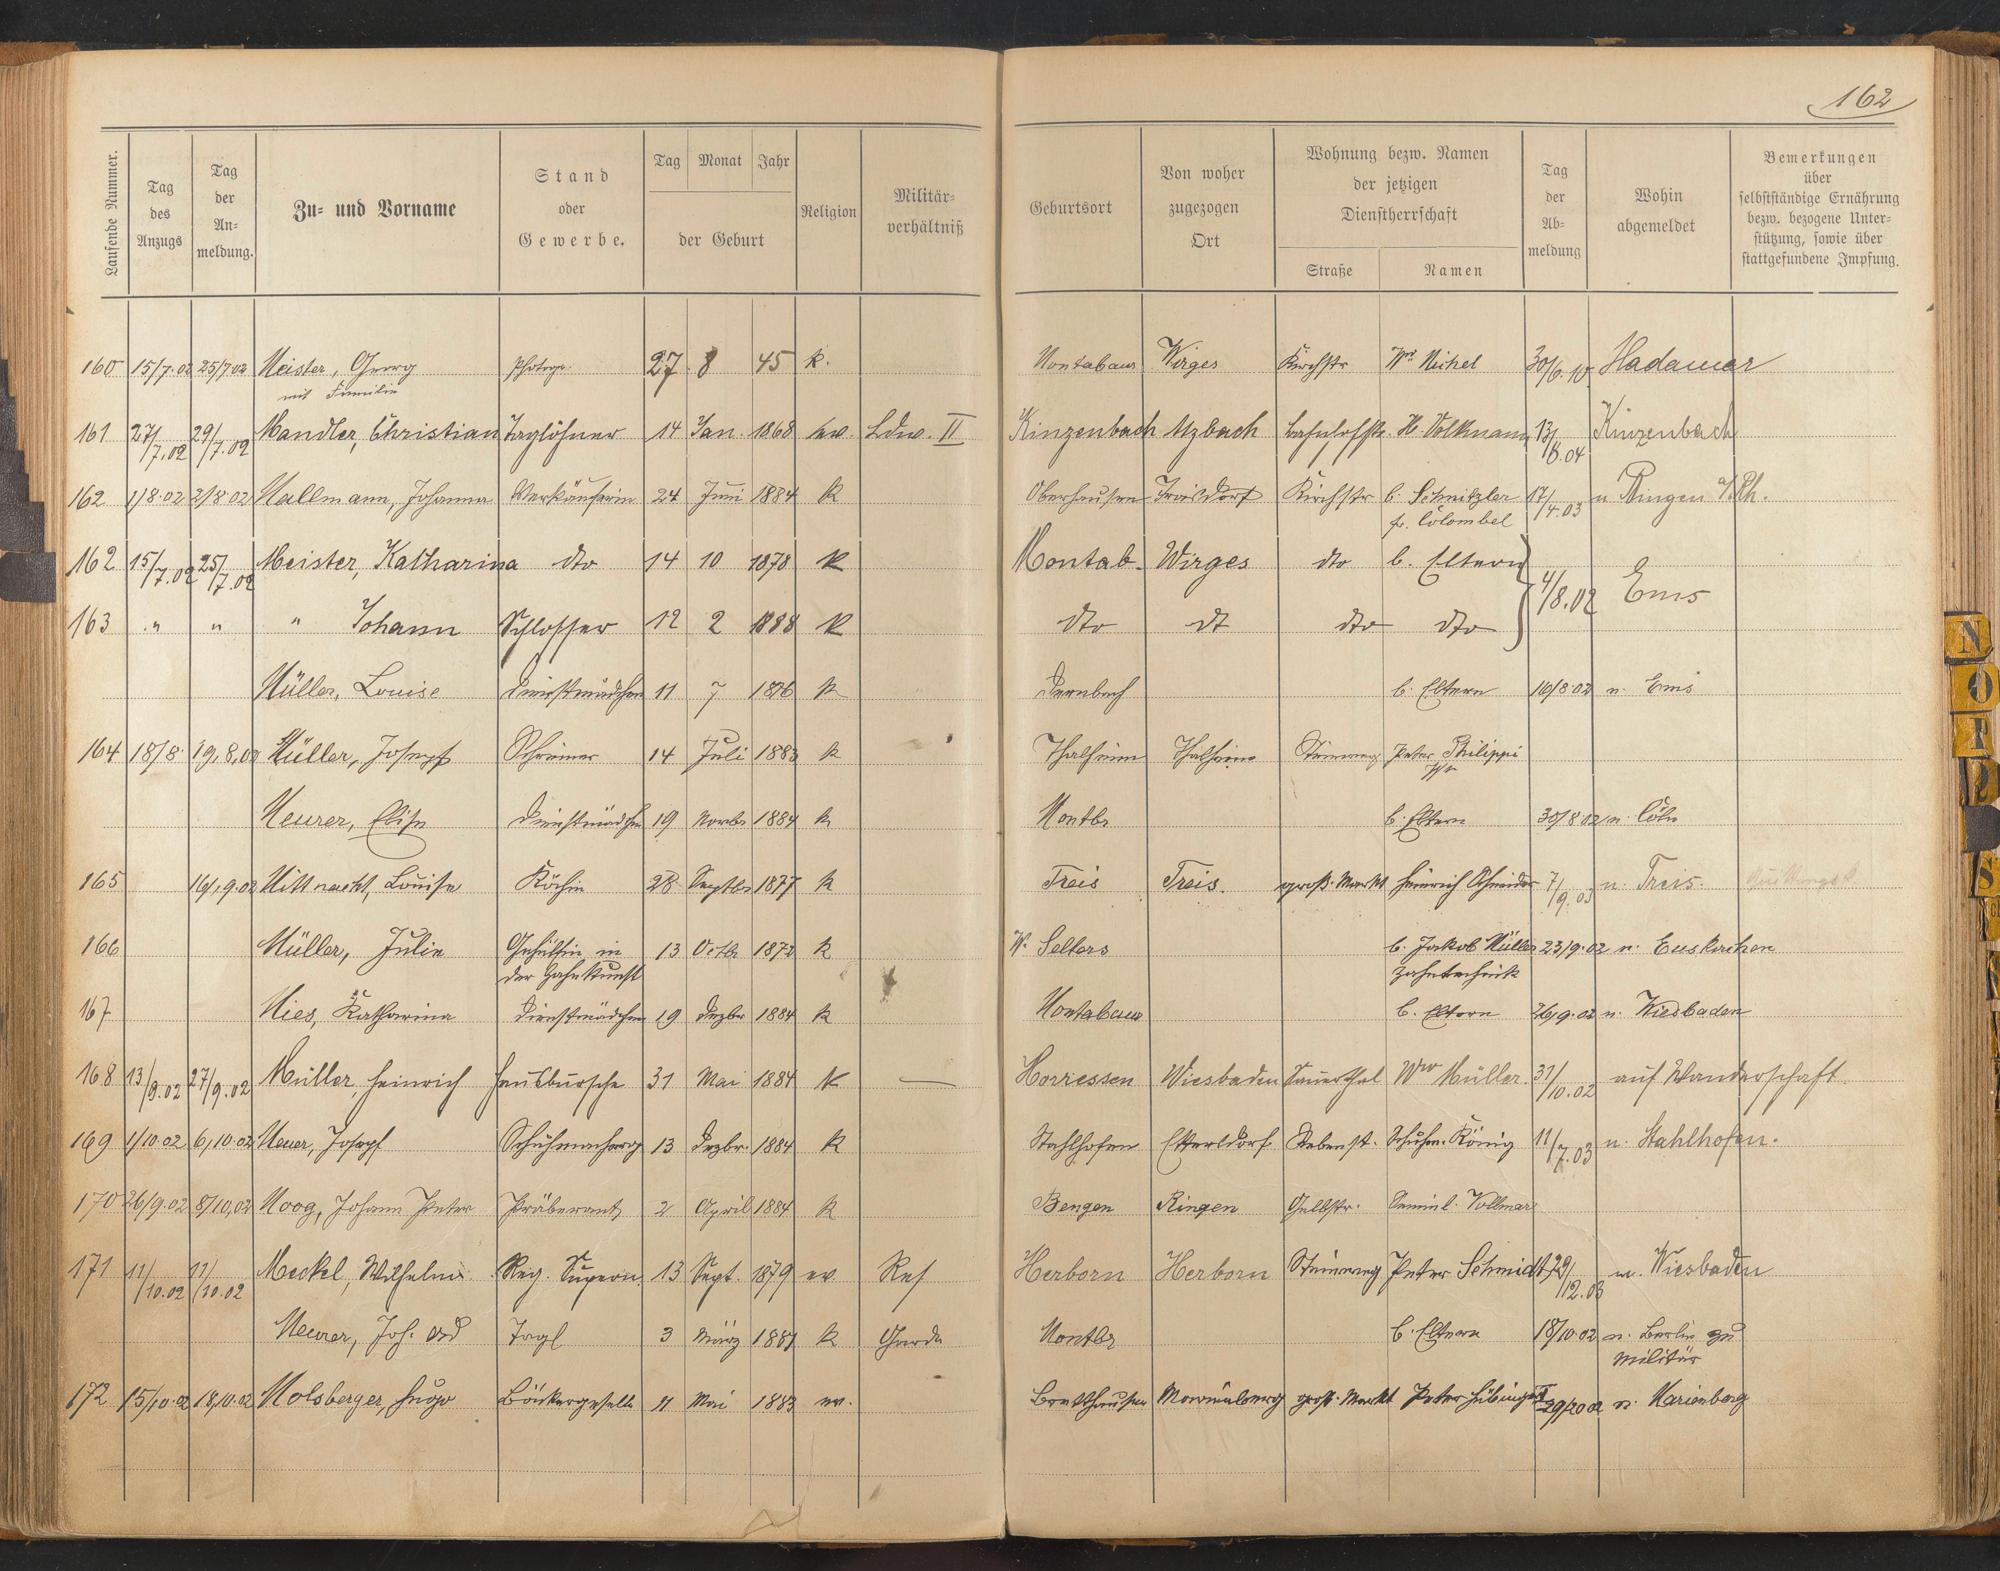 162
Laufende Nummer. Tag des Anzugs Tag der An-meldung. Zu- und Vorname Stand oder Gewerbe. Tag Monat Jahr der Geburt Religion Militär-verhältniß Geburtsort Von woher zugezogen Ort Wohnung bezw. Namen der jetzigen Dienstherrschaft Straße Namen Tag der Ab-meldung Wohin abgemeldet Bemerkungen über selbstständige Ernährung bezw. bezogene Unter-stützung, sowie über stattgefundene Impfung.
160 15/7.02 25/7 02 Meister, Georg Photogr. 27 8 45 k. Montabaur Wirges Kirchstr Wr Michel 30/6.10 Hadamar
mit Familie
161 27/7.02 29/7.02 Mandler, Christian Taglöhner 14 Jan. 1868 ev. Ldw. II Kinzenbach Atzbach Bahnhofstr. H. Volkmann 13/8.04 Kinzenbach
162 1/8.02 2/8 02 Mallmann, Johanna Verkäuferin 24 Juni 1884 k Oberhausen Troisdorf Kirchstr b. Schnitzler 17/4.03 n Bingen a/Rh.
fr. Colombel
162 15/7.02 25/7.02 Meister, Katharina dto 14 10 1878 k Montab. Wirges dto b. Eltern 4/8.02 Ems
163 " " " Johann Schlosser 12 2 1888 k dto dt dto dto
Müller, Louise Dienstmädchen 11 7 1886 k Dernbach b. Eltern 16/8 02 n. Ems
164 18/8. 19,8,02 Müller, Joseph Schreiner 14 Juli 1883 k Thalheim Thalheim Steinweg Peter Philippi
Meurer, Elise Dienstmädchen 19 Novbr 1884 k Montbr b. Eltern 30/8.02 n. Cöln
165 16,9.02 Mittnacht, Louise Köchin 28 Septbr 1877 k Treis Treis. groß. Markt Heinrich Schneider 7/9.03 n. Treis.
166 Müller, Julie Gehülfin in 13 Octbr 1872 k W. Selters b. Jakob Müller 23/9.02 n. Euskirchen
der Zahnkunst Zahntechnik
167 Mies, Katharina Dienstmädchen 19 Dezbr 1884 k Montabaur b. Eltern 26,9.02 n. Wiesbaden
168 13/9.02 27/9.02 Müller, Heinrich Hausbursche 31 Mai 1884 k — Horressen Wiesbaden Sauerthal Wwe Müller. 31/10.02 auf Wanderschaft.
169 1/10.02 6,10.02 Meuer, Joseph Schuhmacherg 13 Dezbr. 1884 k Stahlhofen Ettersdorf Rebenst. Schuhm. König 11/7.03 n. Stahlhofen.
170 26/9.02 8/10,02 Moog, Johann Peter Präberant 2 April 1884 k Bengen Ringen Gelbstr. Seminl. Vollmar
171 11/10.02 11/10.02 Meckel, Wilhelm Reg. Supern. 13 Sept. 1879 ev Res Herborn Herborn Steinweg Peter Schmidt 29/12.03 n. Wiesbaden
Meurer, Joh. Tagl 3 März 1881 k Garde Montbr b. Eltern 18/10.02 n. Berlin zu
Militär
172 15/10.02 18,10.02 Molsberger, Hugo Bäckergeselle 11 Mai 1883 ev. Bretthausen Marienberg groß. Markt Peter Hübinger n. Marienberg
N
O
P
S